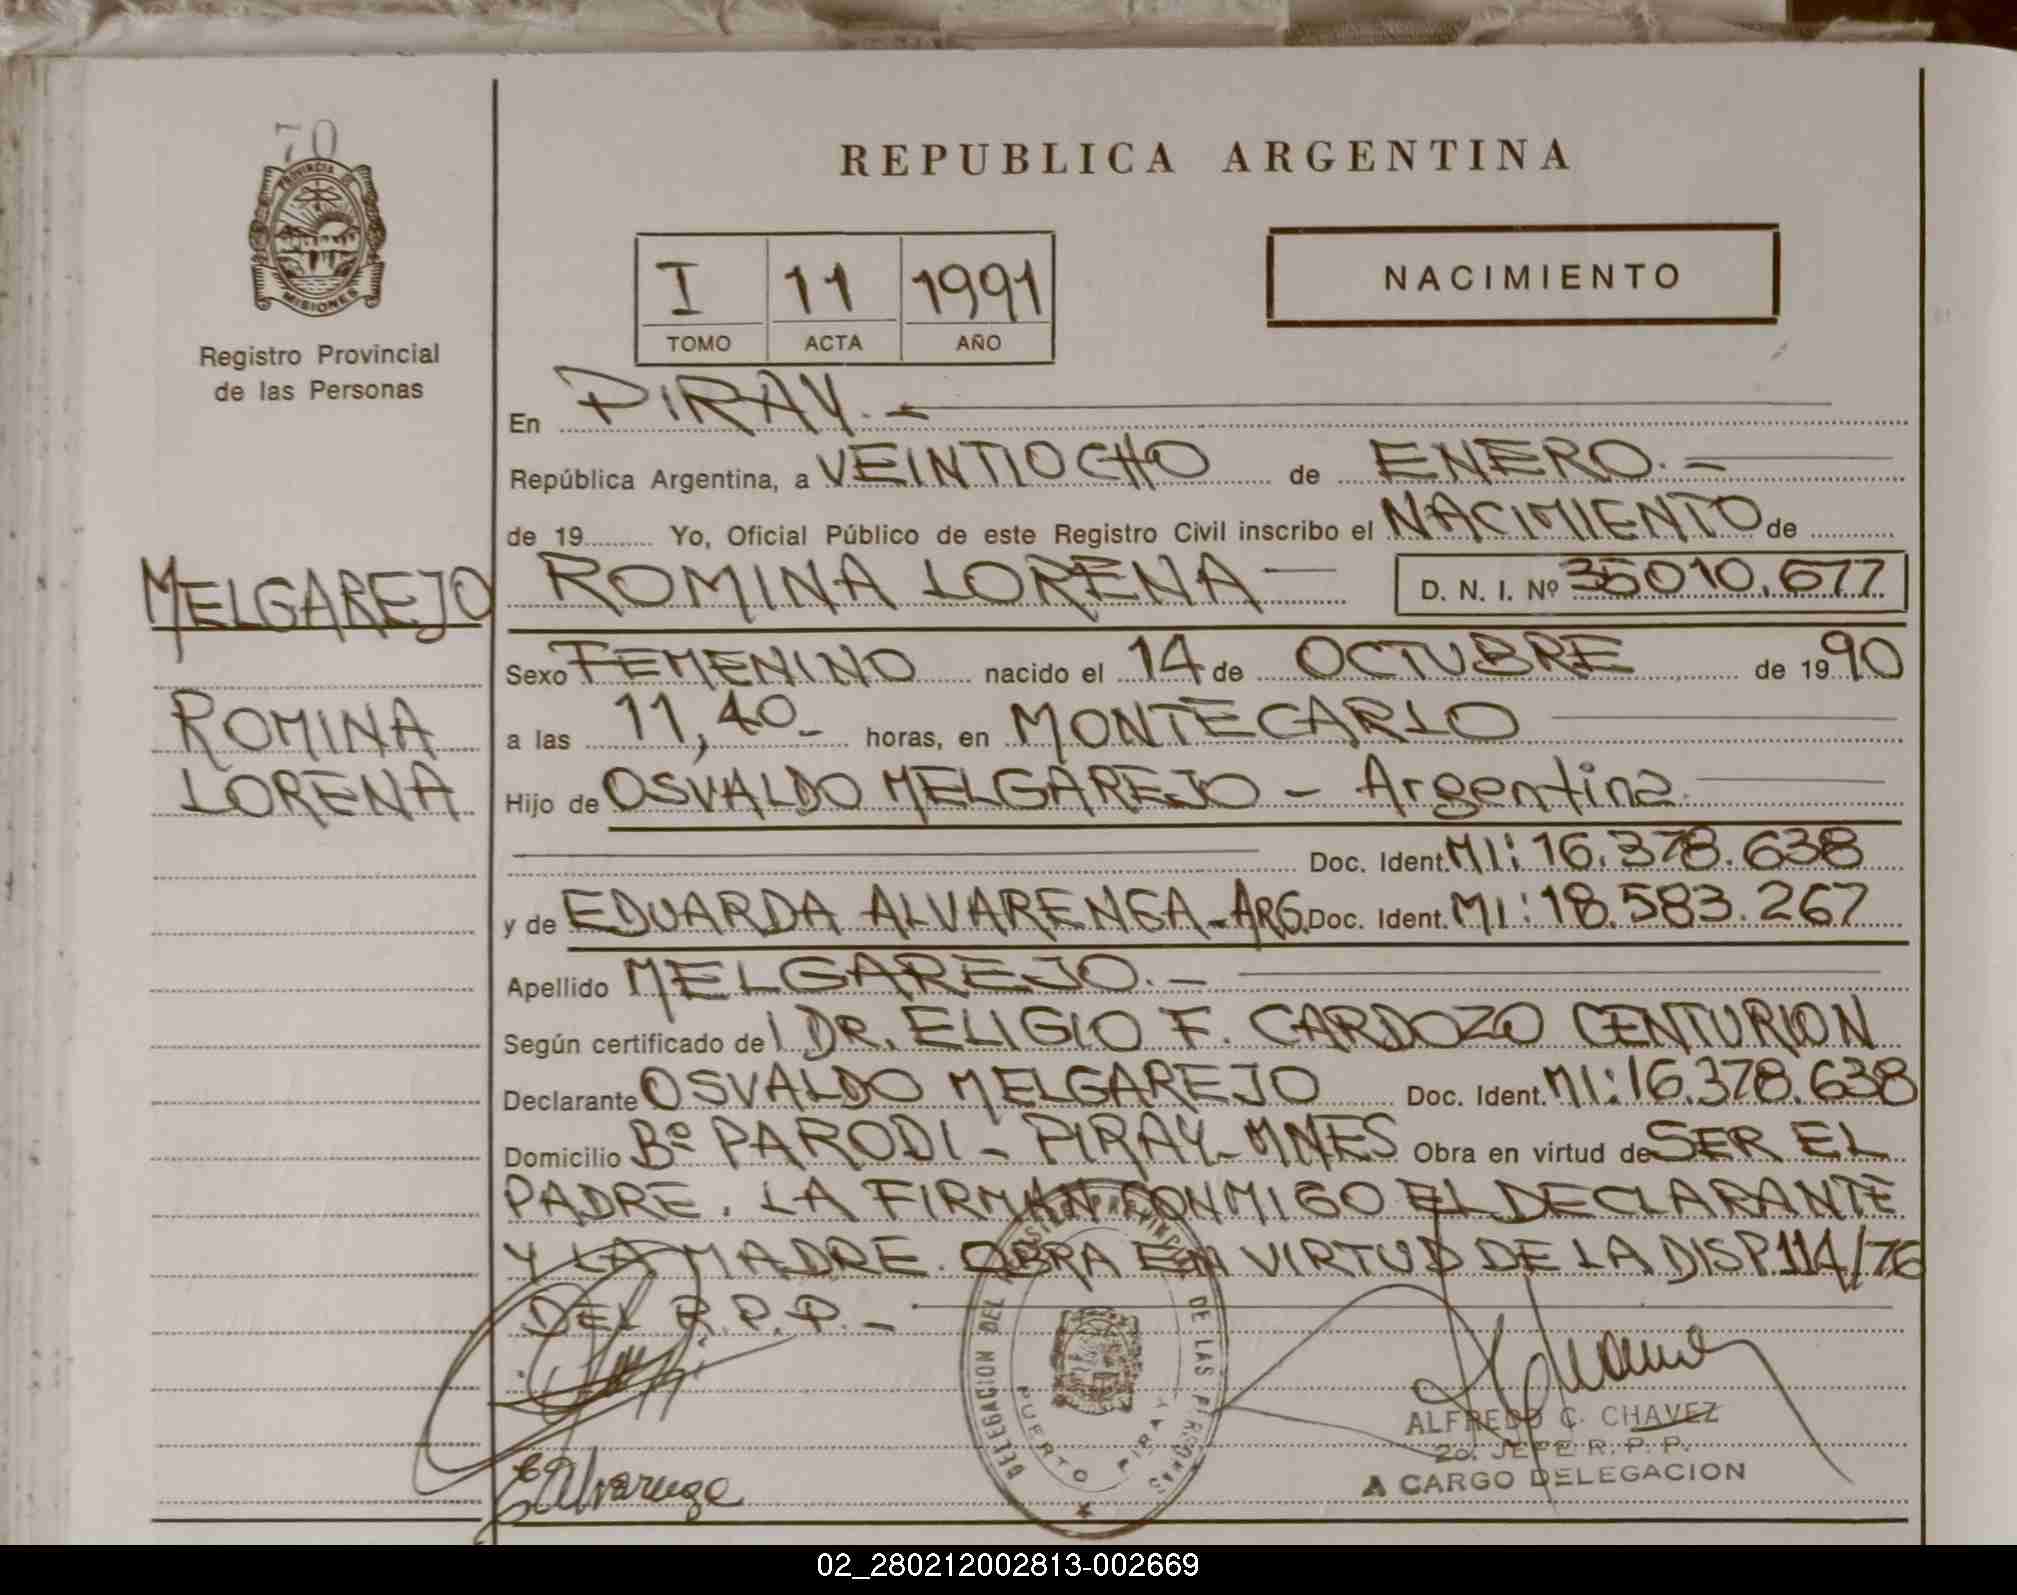 70
PROVINCIA DE
MISIONES
Registro Provincial
de las Personas
MELGAREJO
ROMINA
LORENA
REPUBLICA ARGENTINA
I 11 1991
TOMO ACTA AÑO
NACIMIENTO
En PIRAY.-
República Argentina, a VEINTIOCHO de ENERO.-
de 19 Yo, Oficial Público de este Registro Civil inscribo el NACIMIENTO de
ROMINA LORENA D. N. I. Nº 35010.677
Sexo FEMENINO nacido el 14 de OCTUBRE de 1990
a las 11,40- horas, en MONTECARLO
Hijo de OSVALDO MELGAREJO - Argentina
Doc. Ident. MI: 16.378.638
y de EDUARDA ALVARENGA - ARG. Doc. Ident. MI: 18.583.267
Apellido MELGAREJO.-
Según certificado del DR. ELIGIO F. CARDOZO CENTURION
Declarante OSVALDO MELGAREJO Doc. Ident. MI: 16.378.638
Domicilio Bº PARODI - PIRAY - MNES Obra en virtud de SER EL
PADRE. LA FIRMAN CONMIGO EL DECLARANTE
Y LA MADRE. OBRA EN VIRTUD DE LA DISP. 114/76
DEL R.P.P.-
DELEGACION DEL DE LAS PERSONAS
PUERTO PIRAY
E Alvarenga
ALFREDO C. CHAVEZ
2o. JEFE R. P. P.
A CARGO DELEGACION
02_280212002813-002669